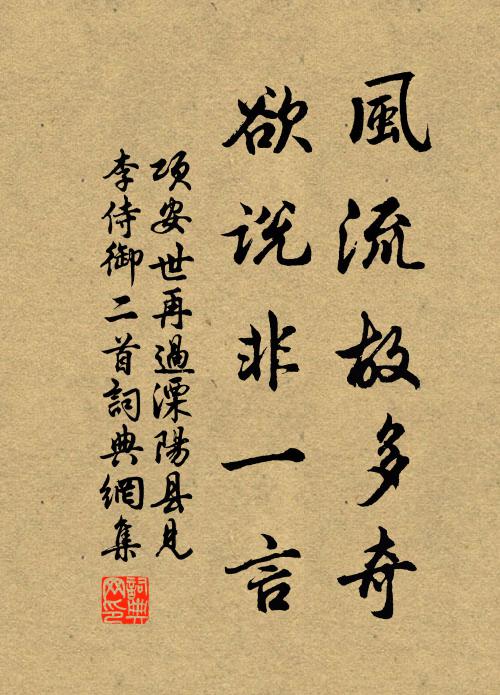 風流故多奇
欲说非一言
項安世再過溧陽县見
李侍御二首詞典網集
詞典
网印